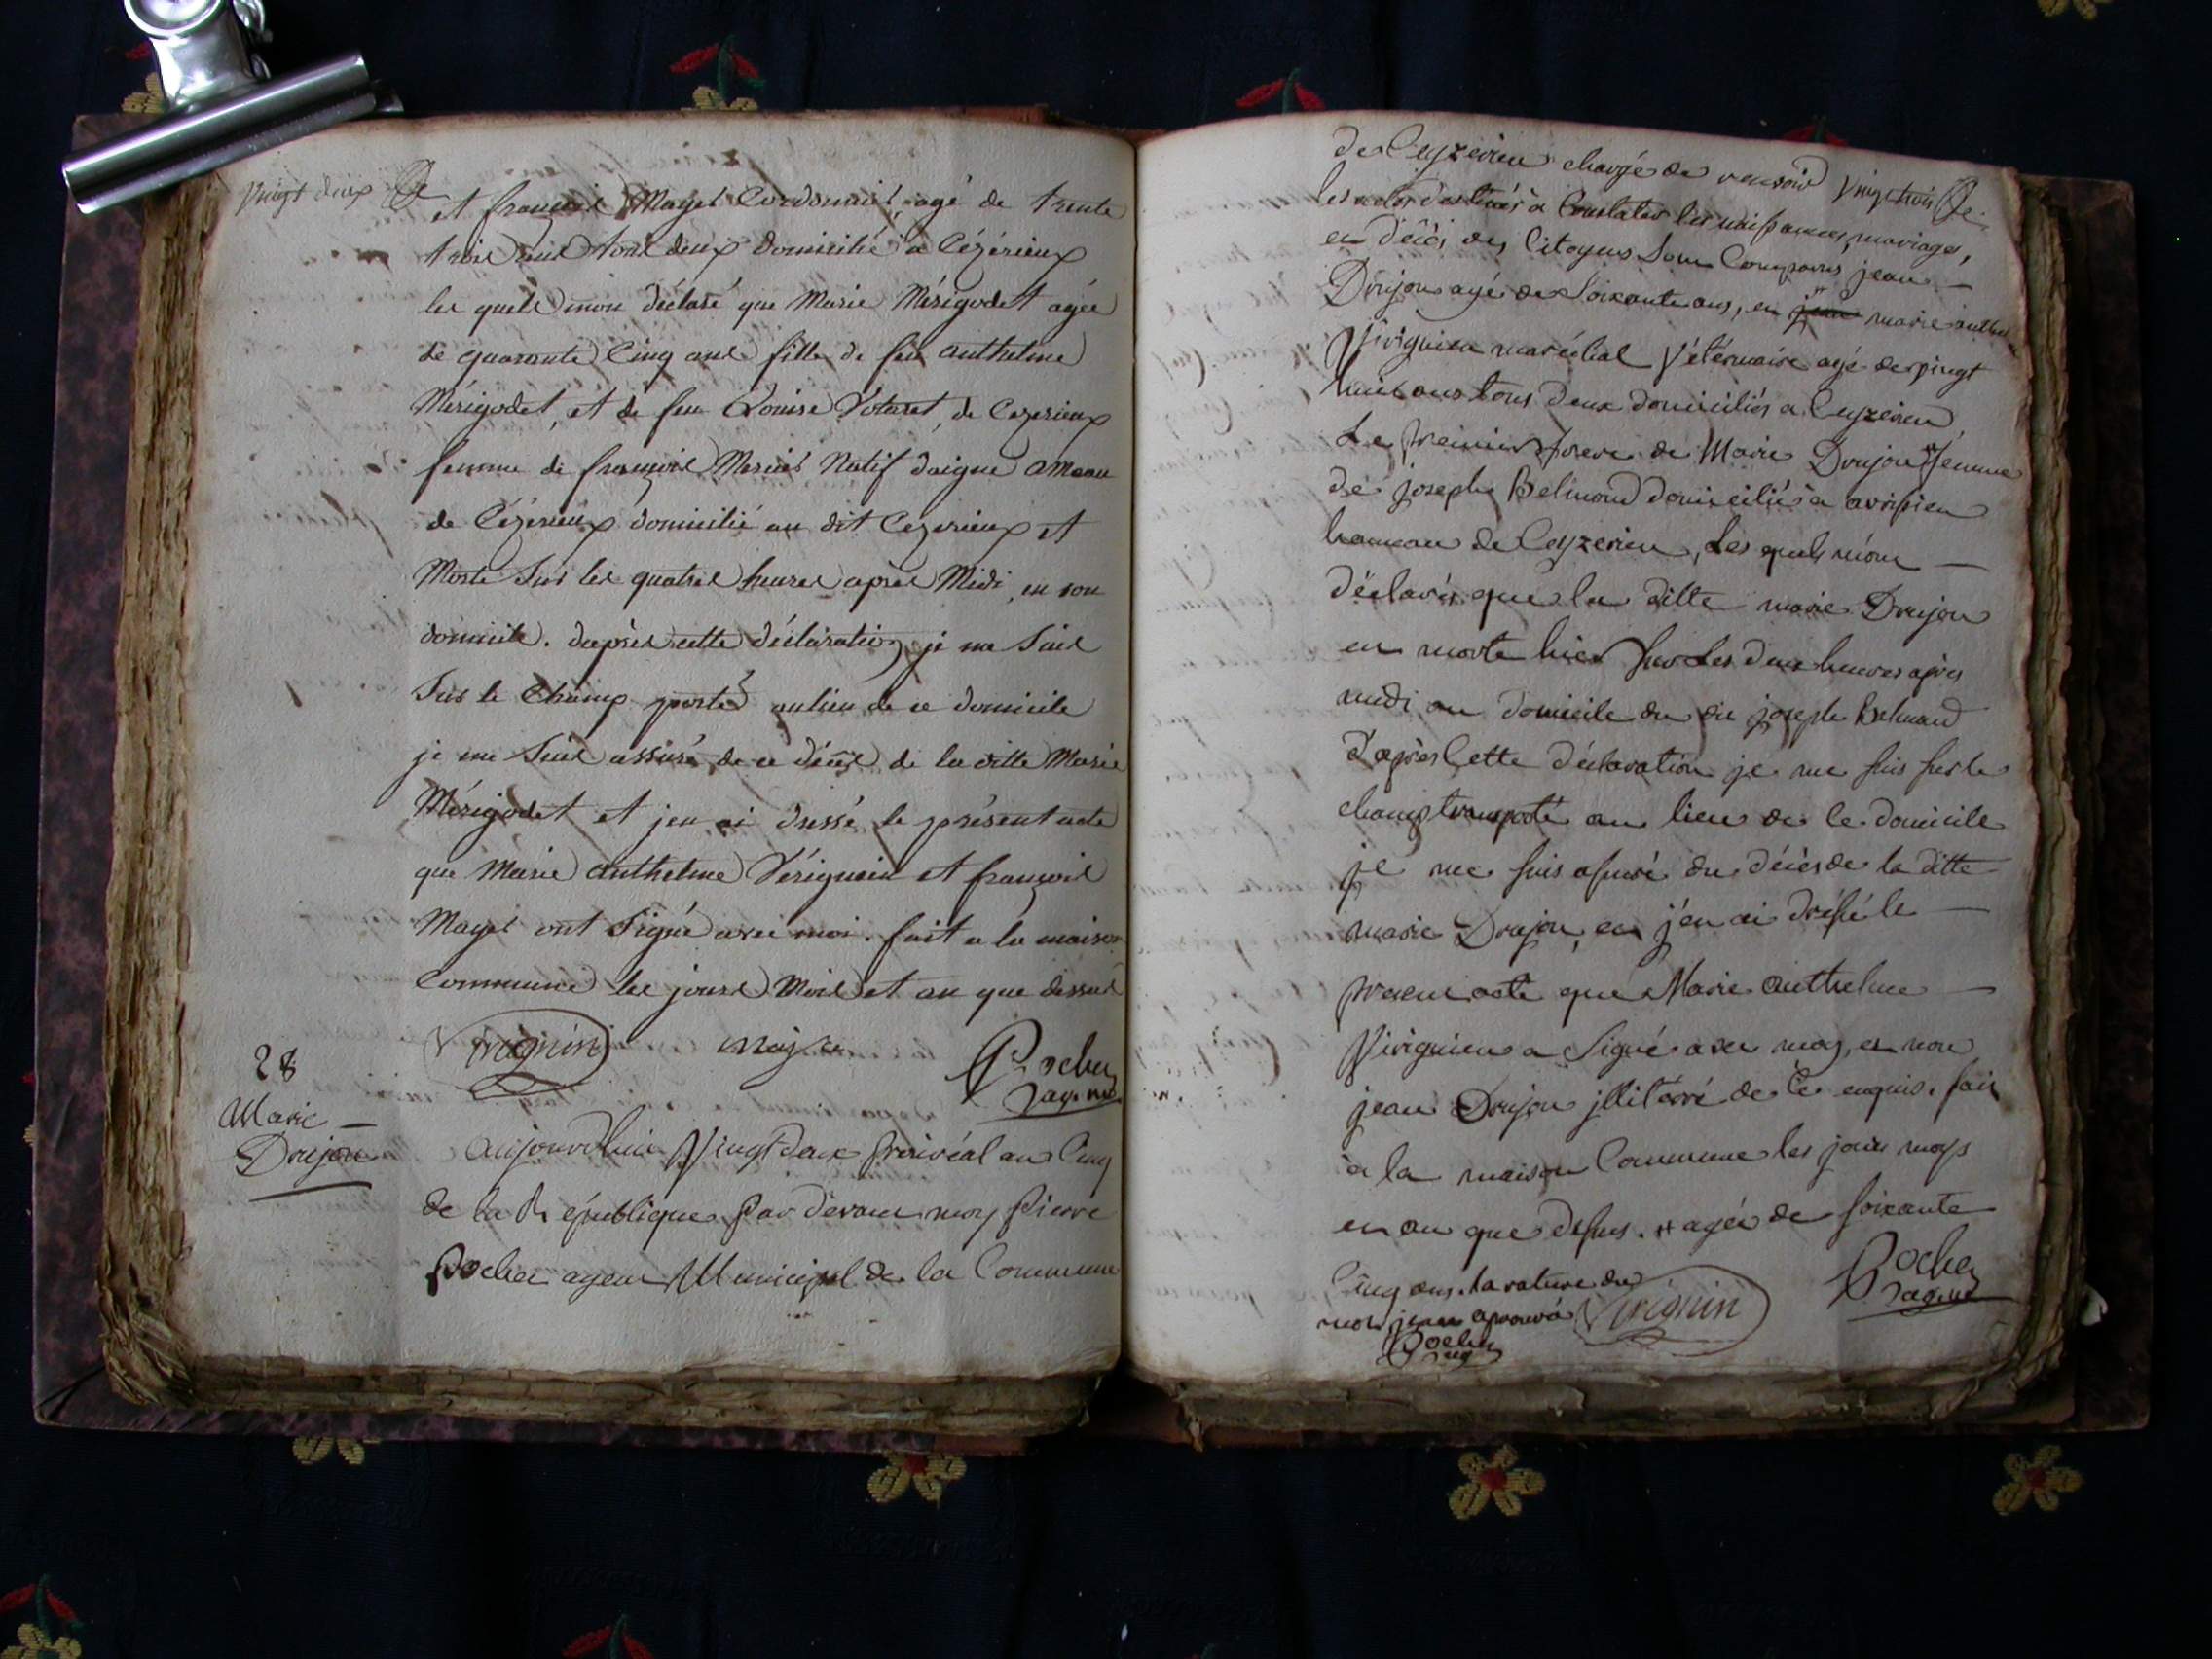 Vingt deux
et françois Mayet Cordonnier, agé de trente
trois ans tous deux domicilié a Cézérieux
les quels mon déclaré que Marie Mérigodet agée
de quarante Cinq ans fille de feu anthelme
Mérigodet, et de feu Louise de Cezerieux
femme de françois Natif daigne ameau
de Cézérieux domicilié au dit Cezerieux et
Morte Sur les quatres heures apres Midi, en son
domicile. daprès cette déclaration je me Suis
Sur le Champ porté au lieu de ce domicile
je me Suis assuré de ce décès de la ditte Marie
Mérigodet et jen ai dressé le présent acte
que Marie anthelme Vérignin et françois
Mayet ont Signé avec moi. fait a la maison
Commune les jours Mois et an que dessus
Virignin Rocher
agt
28
Marie
Drujon
aujourdhuy Vingt deux frairéal an Cinq
de la République par devant moy pierre
Rocher agent Municipal de la Commune
Vingt trois
de Ceyzerieu chargé de recevoir
les actes destinés à Constater les naissances, mariages,
et décès des Citoyens sont Comparus jean
Drujon agé de soixante ans, et jean marie anthelme
Virignien maréchal Vétérinaire agé de vingt
huit ans tous deux domiciliés a Ceyzerieu
Le premier frere de Marie Drujon # femme
de joseph Belmond domiciliés à avrissieu
hameau de Ceyzerieu, Les quels m'ont
déclarés que la ditte marie Drujon
et morte hier sur Les deux heures après
midi au domicile du dit joseph Belmond
D'après Cette déclaration je me suis sur le
champ transporté au lieu de Ce domicile
je me suis assuré du décès de la ditte
marie Drujon, et j'en ai dréssé le
present acte que Marie anthelme
Virignien a signé avec moy, et non
jean Drujon jllitérré de Ce enquis. fait
à la maison Commune les jour moys
et an que dessus. # agée de soixante
Cinq ans. La rature du
mot jean aprouvé Virignin Rocher
agt
Rocher
agt